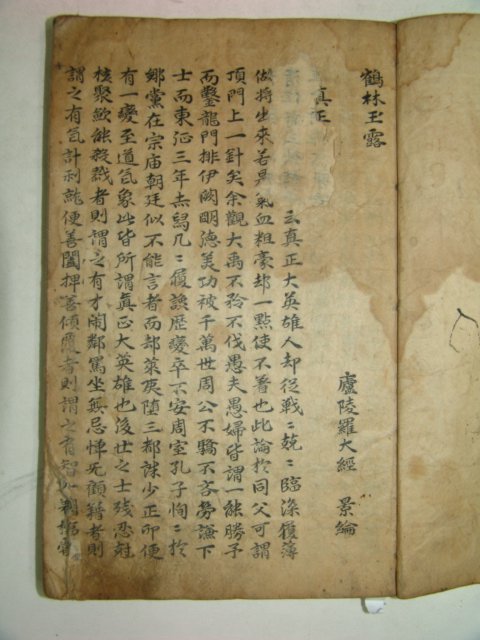 鶴林玉露
廬陵羅大經 景綸
真正
云真正大英雄人却從戰〻兢〻臨深履薄
做將出來若是氣血粗豪却一點使不著也此論於同父可謂
頂門上一針矣余觀大禹不矜不伐愚夫愚婦皆謂一能勝予
而鑿龍門排伊闕明德美功被千萬世周公不驕不吝勞謙下
士而東征三年赤舄几〻履讒歷變卒安周室孔子恂〻於
鄉黨在宗庙朝廷似不能言者而却萊夷墮三都誅少正卯便
有一變至道氣象此皆所謂真正大英雄也後世之士殘忍剋
核聚歛能殺戮者則謂之有才鬧鄰罵坐無忌憚无顧藉者則
謂之有氣計利就便善闔捭善傾覆者則謂之有智